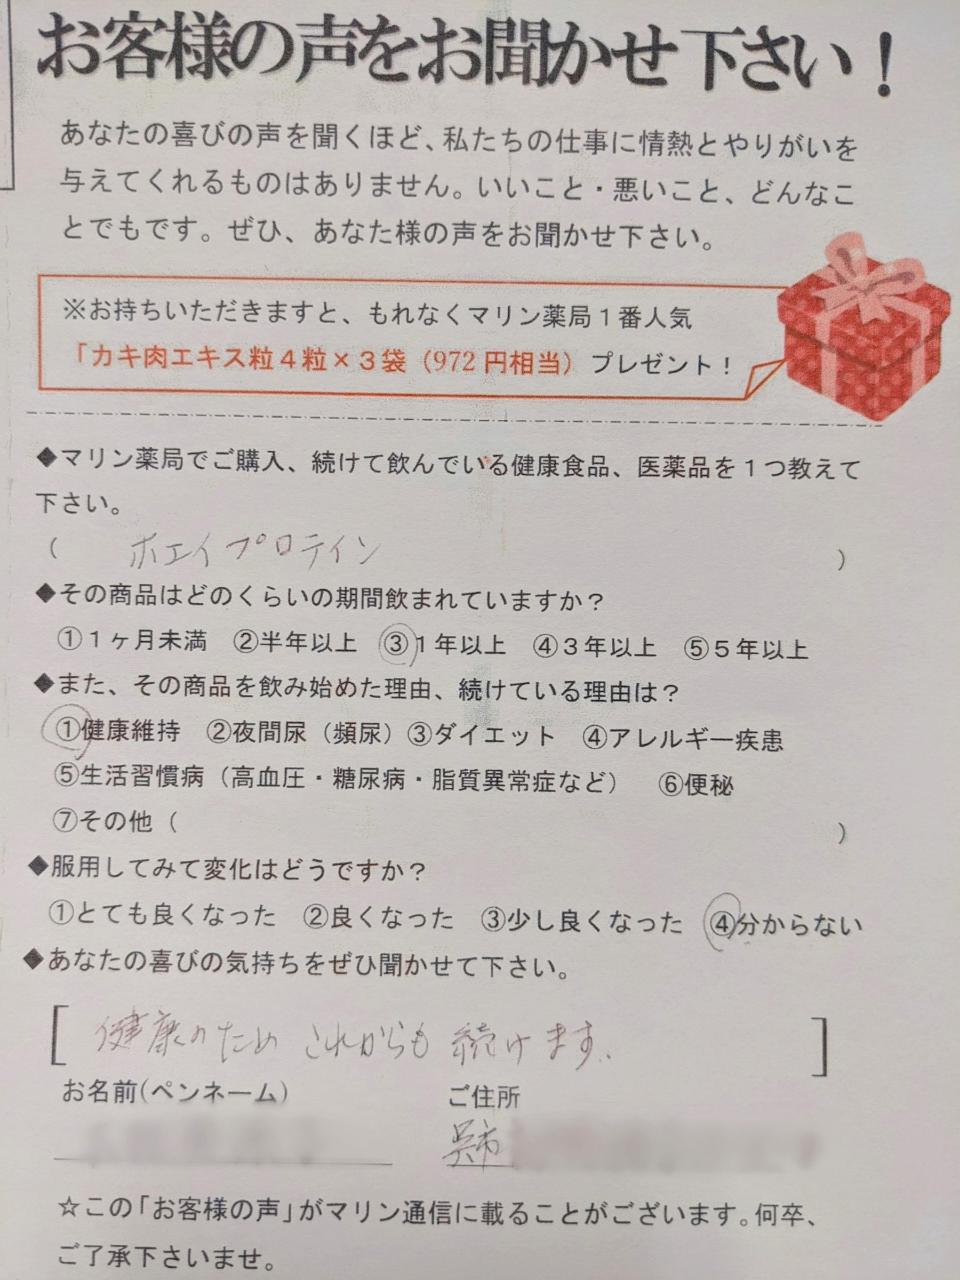 お客様の声をお聞かせ下さい！
あなたの喜びの声を聞くほど、私たちの仕事に情熱とやりがいを
与えてくれるものはありません。いいこと・悪いこと、どんなこ
とでもです。ぜひ、あなた様の声をお聞かせ下さい。
※お持ちいただきますと、もれなくマリン薬局１番人気
「カキ肉エキス粒４粒×３袋（972円相当）プレゼント！
◆マリン薬局でご購入、続けて飲んでいる健康食品、医薬品を１つ教えて
下さい。
（ ホエイプロテイン ）
◆その商品はどのくらいの期間飲まれていますか？
①１ヶ月未満 ②半年以上 ③１年以上 ④３年以上 ⑤５年以上
◆また、その商品を飲み始めた理由、続けている理由は？
①健康維持 ②夜間尿（頻尿）③ダイエット ④アレルギー疾患
⑤生活習慣病（高血圧・糖尿病・脂質異常症など） ⑥便秘
⑦その他（ ）
◆服用してみて変化はどうですか？
①とても良くなった ②良くなった ③少し良くなった ④分からない
◆あなたの喜びの気持ちをぜひ聞かせて下さい。
[ 健康のため これからも 続けます。 ]
お名前(ペンネーム) ご住所
呉市
☆この「お客様の声」がマリン通信に載ることがございます。何卒、
ご了承下さいませ。